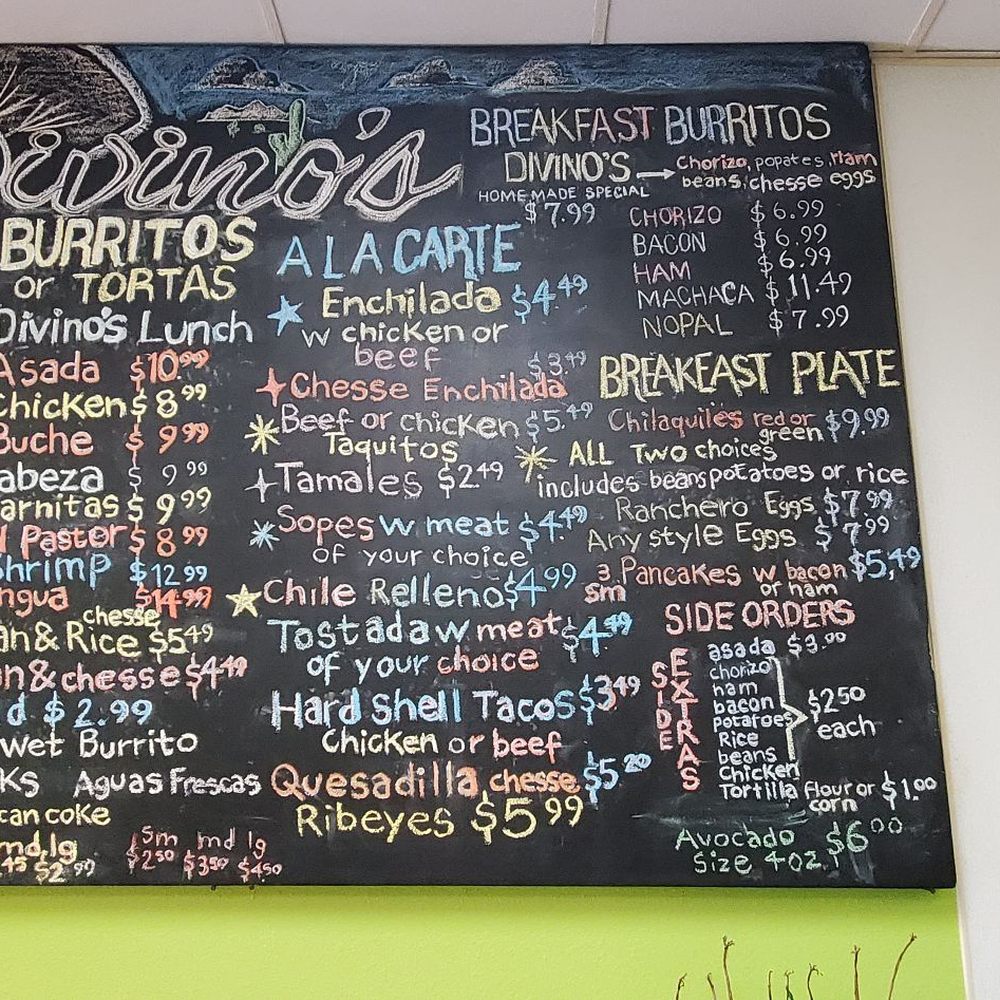 Divino's
BURRITOS
or TORTAS
Divino's Lunch
Asada $10.99
Chicken $8.99
Buche $9.99
abeza $9.99
arnitas $9.99
l Pastor $8.99
Shrimp $12.99
ngua $14.99
chesse
an & Rice $5.49
n & chesse $4.49
d $2.99
wet Burrito
ks Aguas Frescas
can coke
md, lg
.45 $2.90
sm md lg
$2.50 $3.50 $4.50
A LA CARTE
Enchilada $4.49
w chicken or
beef
$3.49
Chesse Enchilada
Beef or chicken $5.49
Taquitos
Tamales $2.49
Sopes w meat $4.49
of your choice
Chile Relleno $4.99
Tostada w meat $4.49
of your choice
Hard Shell Tacos $3.49
Chicken or beef
Quesadilla chesse $5.20
Ribeyes $5.99
BREAKFAST BURRITOS
DIVINO'S → Chorizo, popates, Ham
HOMEMADE SPECIAL beans, chesse eggs
$7.99
CHORIZO $6.99
BACON $6.99
HAM $6.99
MACHACA $11.49
NOPAL $7.99
BREAKFAST PLATE
Chilaquiles red or
green $9.99
ALL Two choices
includes beans potatoes or rice
Ranchero Eggs $7.99
Any style Eggs $7.99
3 Pancakes w bacon $5,49
sm or ham
SIDE ORDERS
SIDE
EXTRAS
asada $3.00
chorizo
ham
bacon
potatoes
Rice
beans
Chicken
$2.50
each
Tortilla flour or $1.00
corn
Avocado $6.00
Size 4oz.